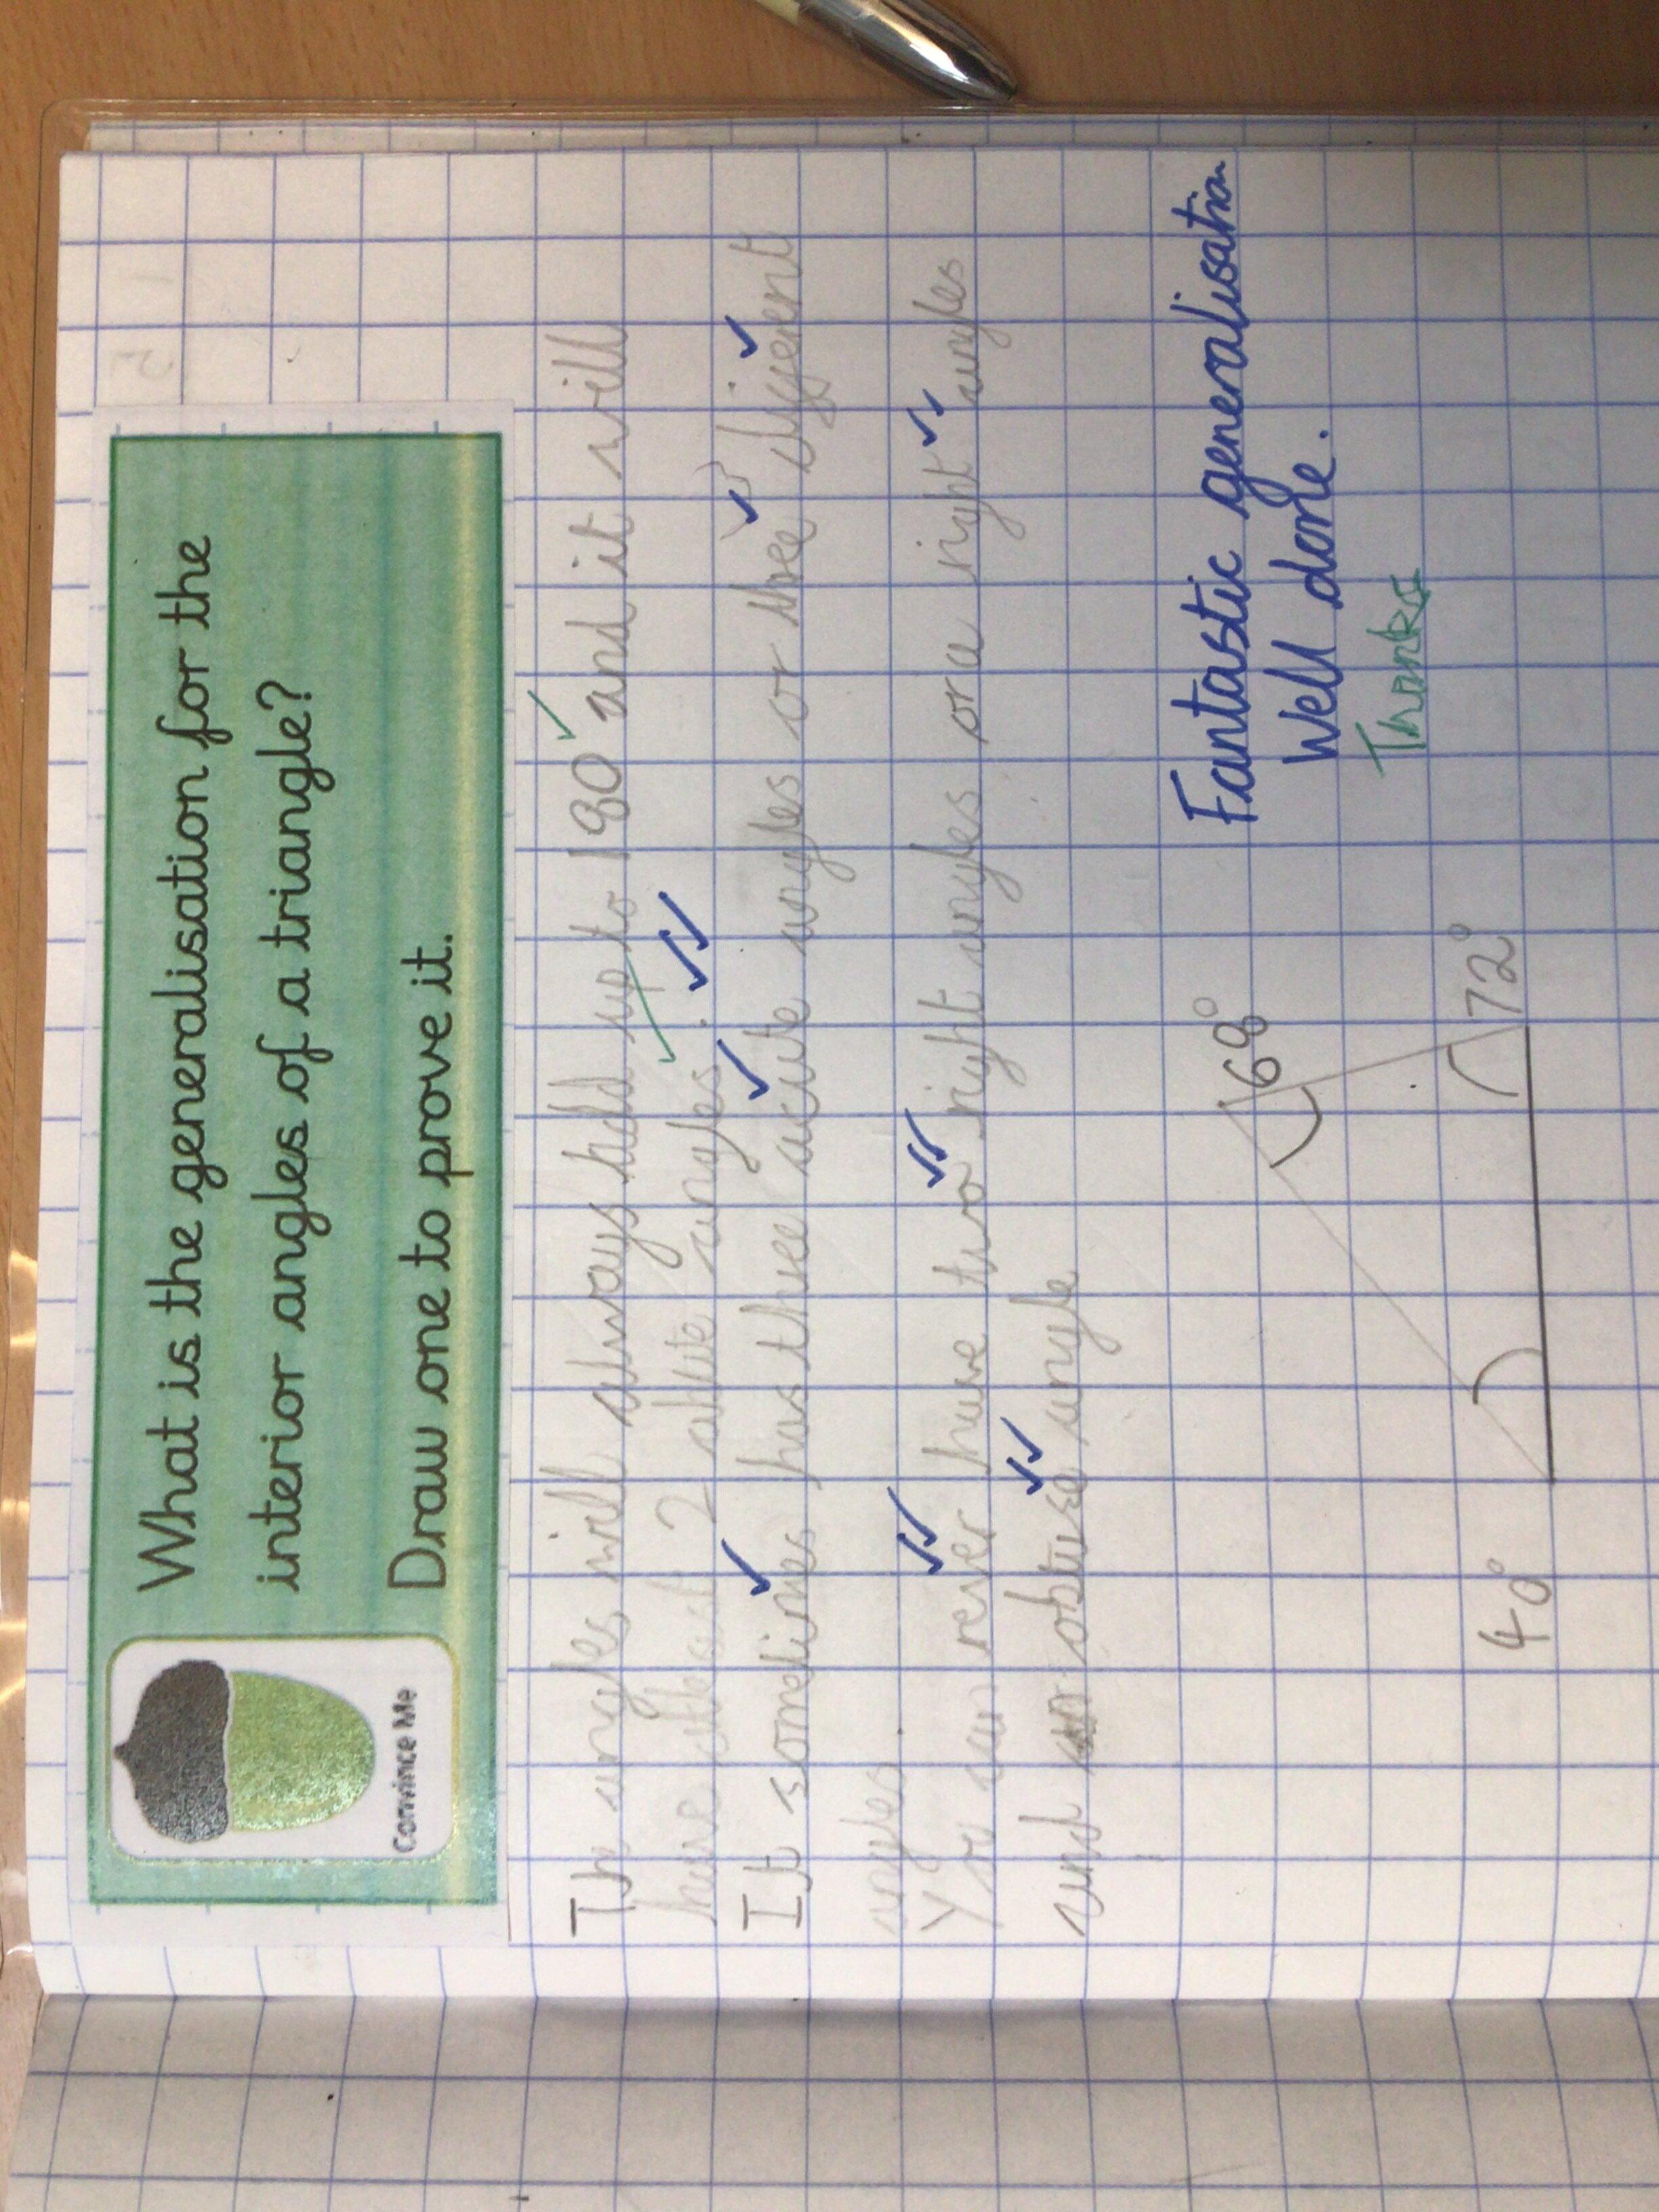 What is the generalisation for the
interior angles of a triangle?
Draw one to prove it.
Convince Me
The angles will always add up to 180 and it will
have atleast 2 acute angles.
It sometimes has three acute angles or three different
angles.
You can never have two right angles or a right angles
and an obtuse angle
Fantastic generalisation
Well done.
Thanks
68°
40°
72°